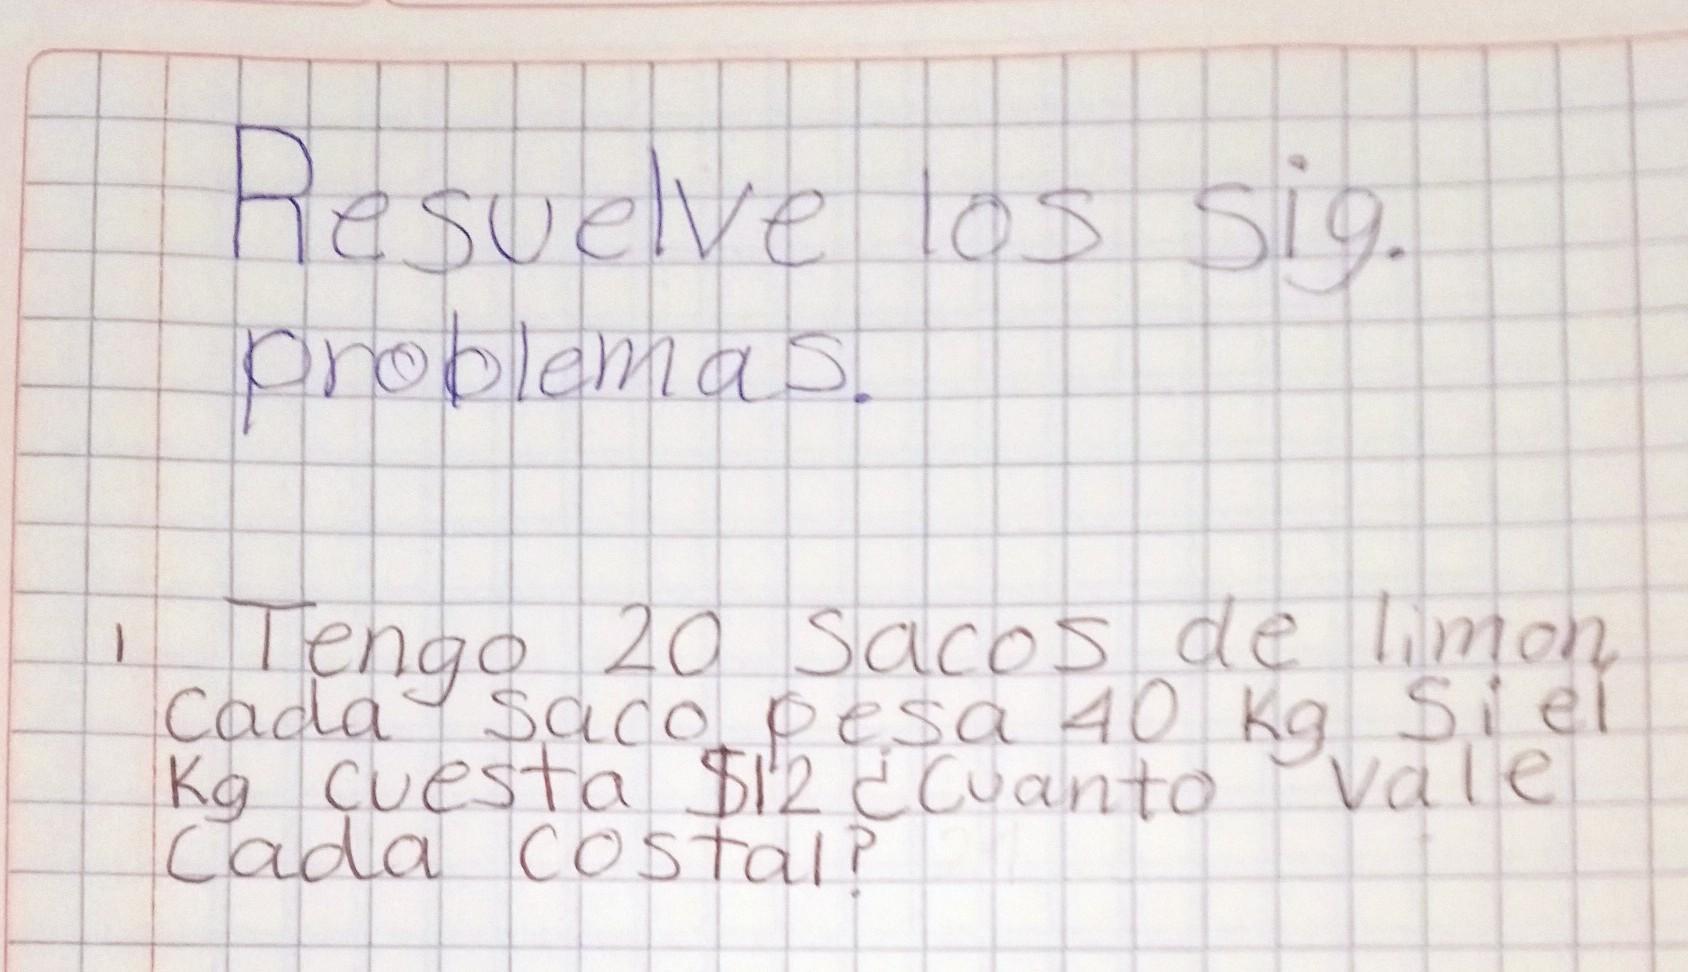 Resuelve los sig.
problemas.
1 Tengo 20 sacos de limon
cada saco pesa 40 Kg Si el
Kg cuesta $12 ¿Cuanto vale
cada costal?